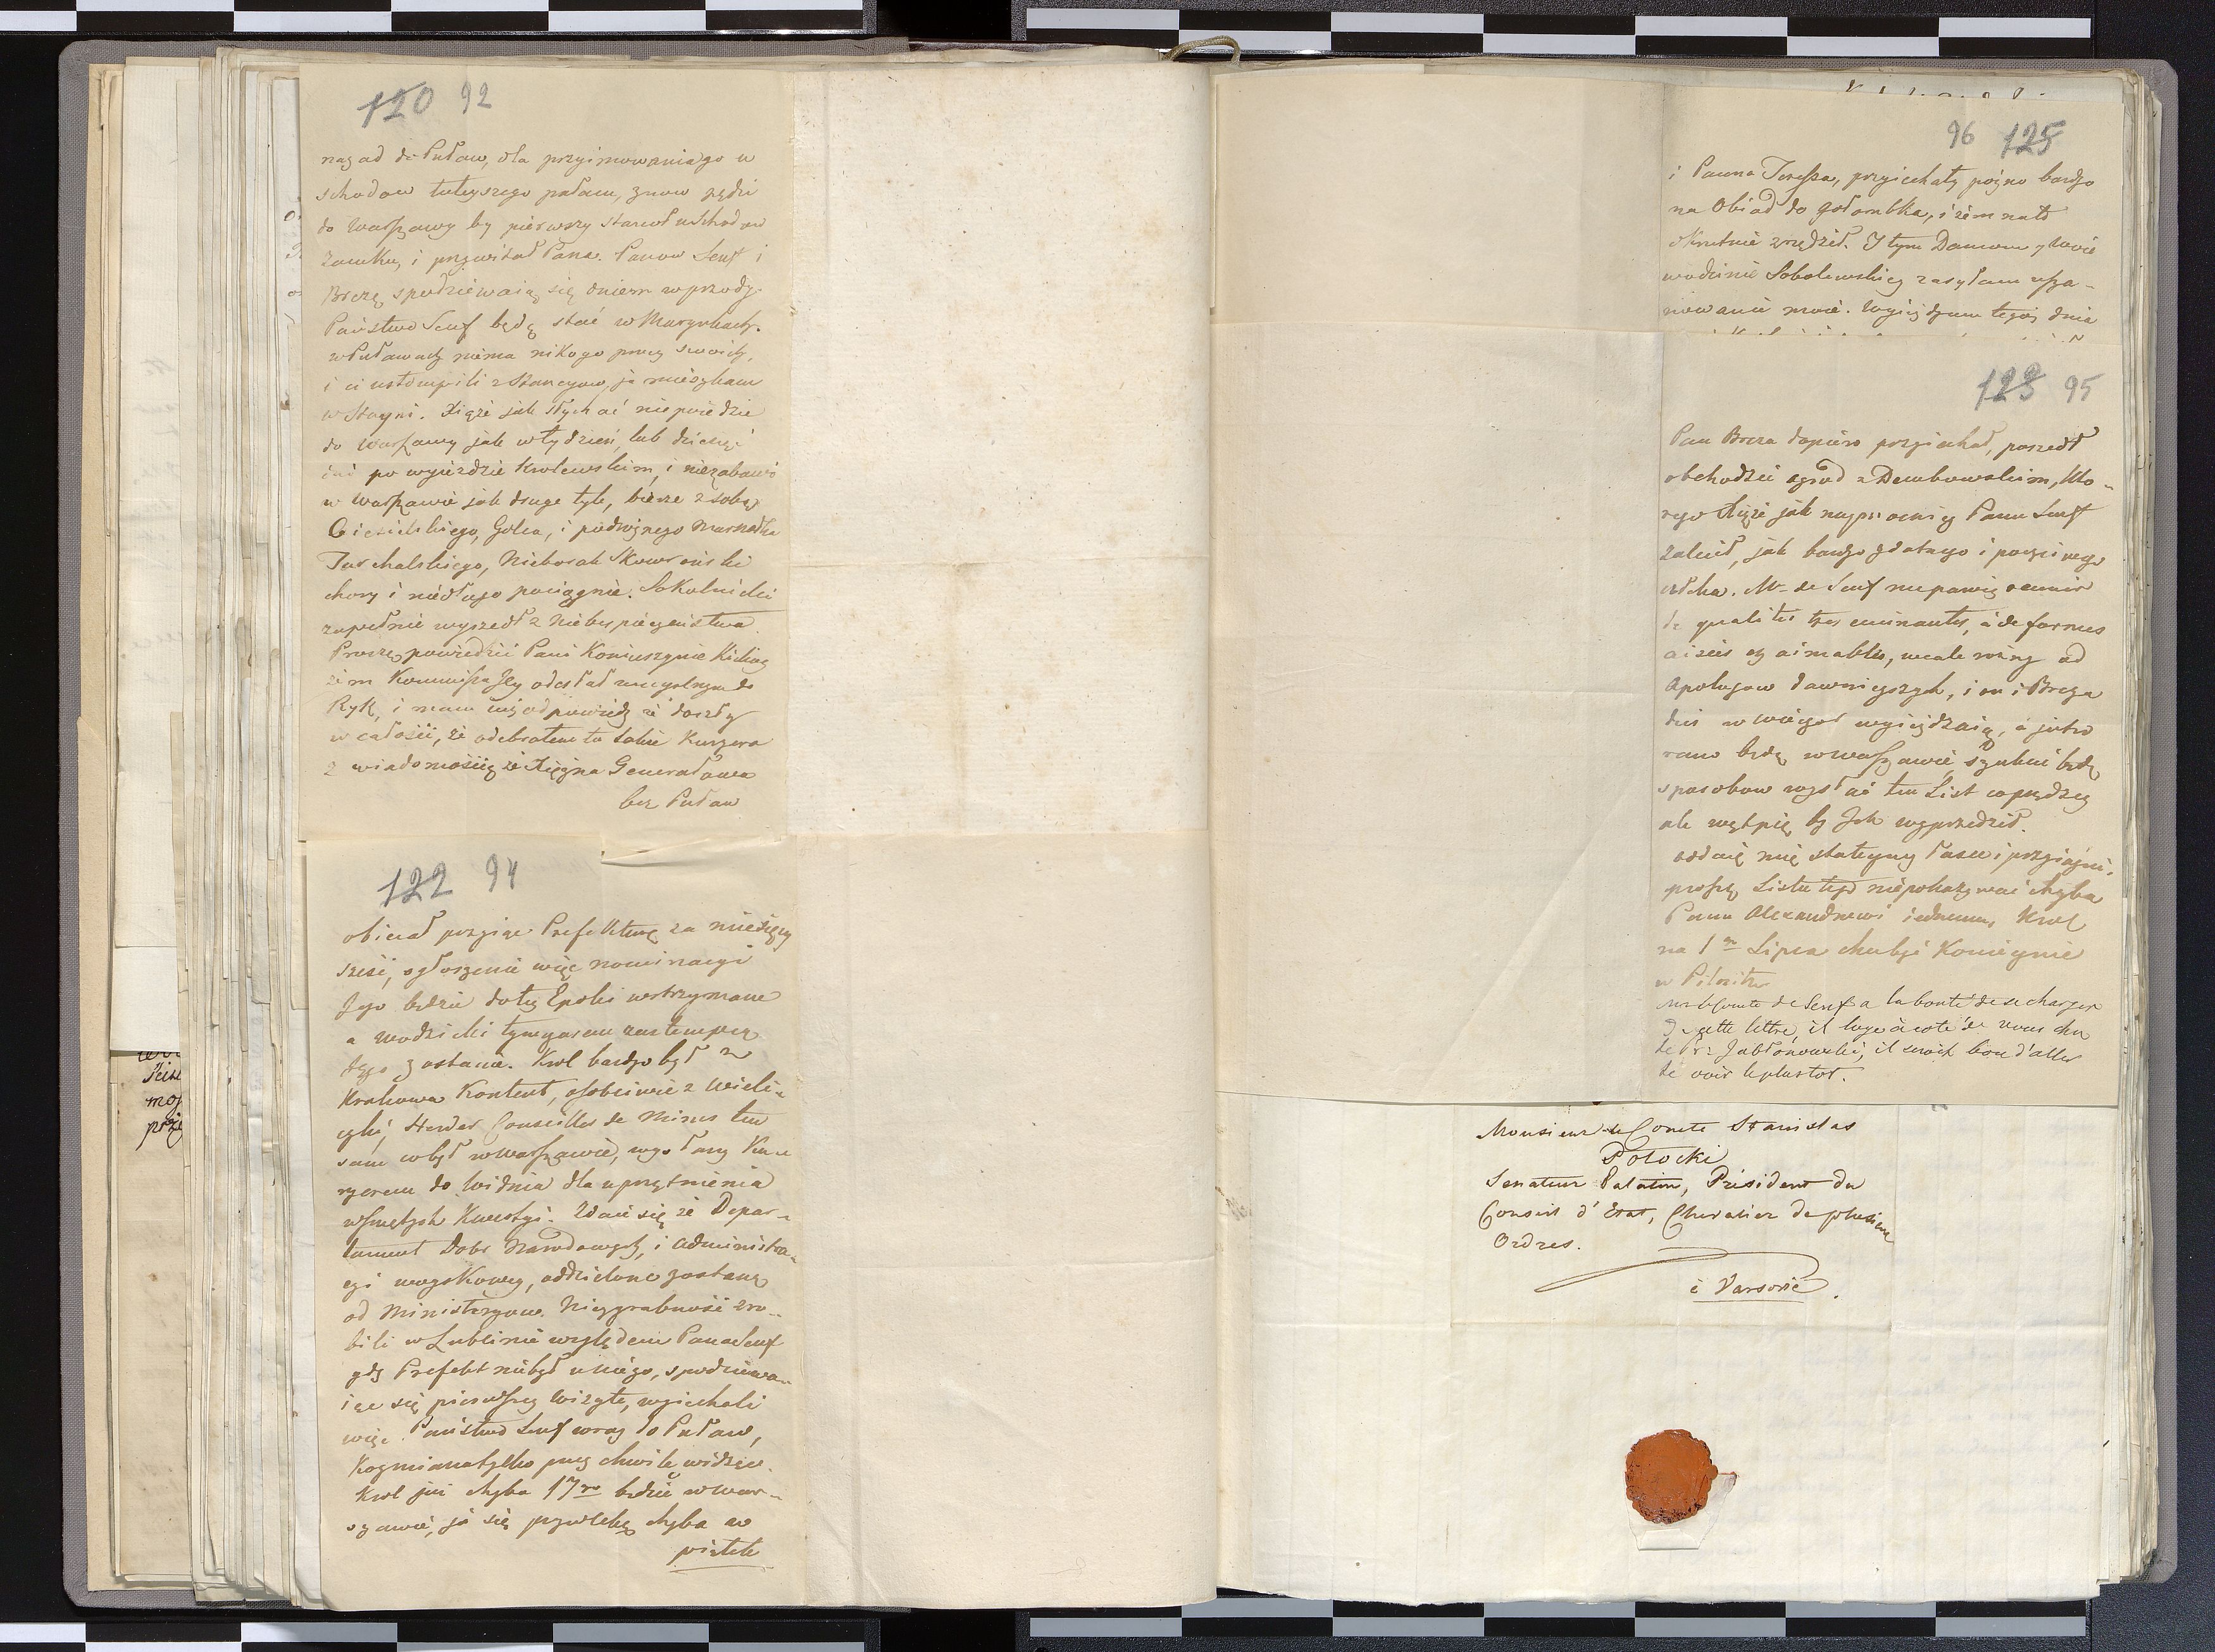 120 92
nazad do Puław, dla przyimowania go u
schodow tuteyszego pałacu, znow pędzi
do Warszawy by pierwszy stanoł u schodow
zamku, i przywitał Pana. Panow Senft i
Brezę spodziewaią się dniem wprzody.
Państwo Senf będą stać w Marynkach.
w Puławach niema nikogo procz swoich,
i ci ustompili z Stancyow, ja mieszkam
w Stayni. Xiąże jak słychać niepoiedzie
do Warszawy jak w tydzień, lub dziesięć
dni po wyieździe Krolewskim, i niezabawi
w Warszawie jak drugie tyle, bierze z sobą
Ciesielskiego, Golca, i podroznego Marszałka
Jaschalskiego, Nieborak Skowroński
chory i niedługo pociągnie. Sokolnicki
zupełnie wyszedł z Niebespieczeństwa.
Proszę powiedzić Pani Koniuszynie Kickiey
żem Kommissa Jey odesłał umyslnym do
Ryk, i mam iuż odpowiedz że doszły
w całości, że odebrałem tu takie Kuryera
z wiadomością że Xiężna Generałowa
bez Puław
122 94
obiecał przyiąć Prefekturę za miesięcy
sześć, ogłoszenie więc nominacyi
Jego będzie do tey Epoki wstrzymane
a Wodzicki tymczasem zastempcą
Jego zostanie. Krol bardzo był z
Krakowa Kontent, osobliwie z Wieli-
czki, Herder Conseiller de Mines ten
sam co był w Warszawie, wysłany Kur-
ryerem do Widnia dla uprzątnienia
wszelkich Kwestyi. Zdaie się że Depar-
tament Dobr Narodowych, i administra-
cyi woyskowey, oddzielone zostaną
od Ministrow. Niezgrabność zro-
bili w Lublinie względem Pana Senf
gdy Prefekt niebył u niego, spodziewa-
iąc się pierwszey wizyty, wyiechali
więc Państwo Senf wraz do Puław,
Kozmiana tylko przez chwile widząc.
Krol już chyba 17go będzie w War-
szawie, ja się przywlekę chyba w
piątek
96 125
i Panna Teressa, przyiechały pożno bardzo
na Obiad do Gołombka, i żem na to
okrutnie zrzędził. I tym Damom y Woie
wodzinie Sobolewskiey zasyłam usza-
nowanie moie. Wyieżdżam tegoż dnia
123 95
Pan Breza dopiero przyiechał, poszedł
obchodzić ogrod z Dembowskim, kto-
rego Xiąże jak naymocniey Panu Senft
zalecił, jak bardzo zdatnego i poczciwego
człeka. Mr de Senf me parait reunir
de qualités tres eminantes, à de formes
aisées et aimables, wcale rożny od
Apostołow dawnieyszych, i on i Breza
dziś w wieczor wyieżdżaią, á jutro
rano będą w Warszawie, szukać będę
sposobow wysłać ten List coprędzey
ale wątpię by Ich wyprzedził.
oddaię mię stateczney łasce i przyiaźni,
proszę Listu tego niepokazywać chyba
Panu Alexandrowi iednemu, Krol
na 1go Lipca chce być Koniecznie
w Pilnitz
Mr le Comte de Senf a la bonté de se charger
de cette lettre, il loge à coté de vous chez
le Pr: Jabłonowski, il seroit bon d'aller
le voir le plustot.
Monsieur le Comte Stanislas
Potocki
Senateur Palatin, Président du
Conseil d'Etat, Chevalier de plusieurs
Ordres.
à Varsovie.